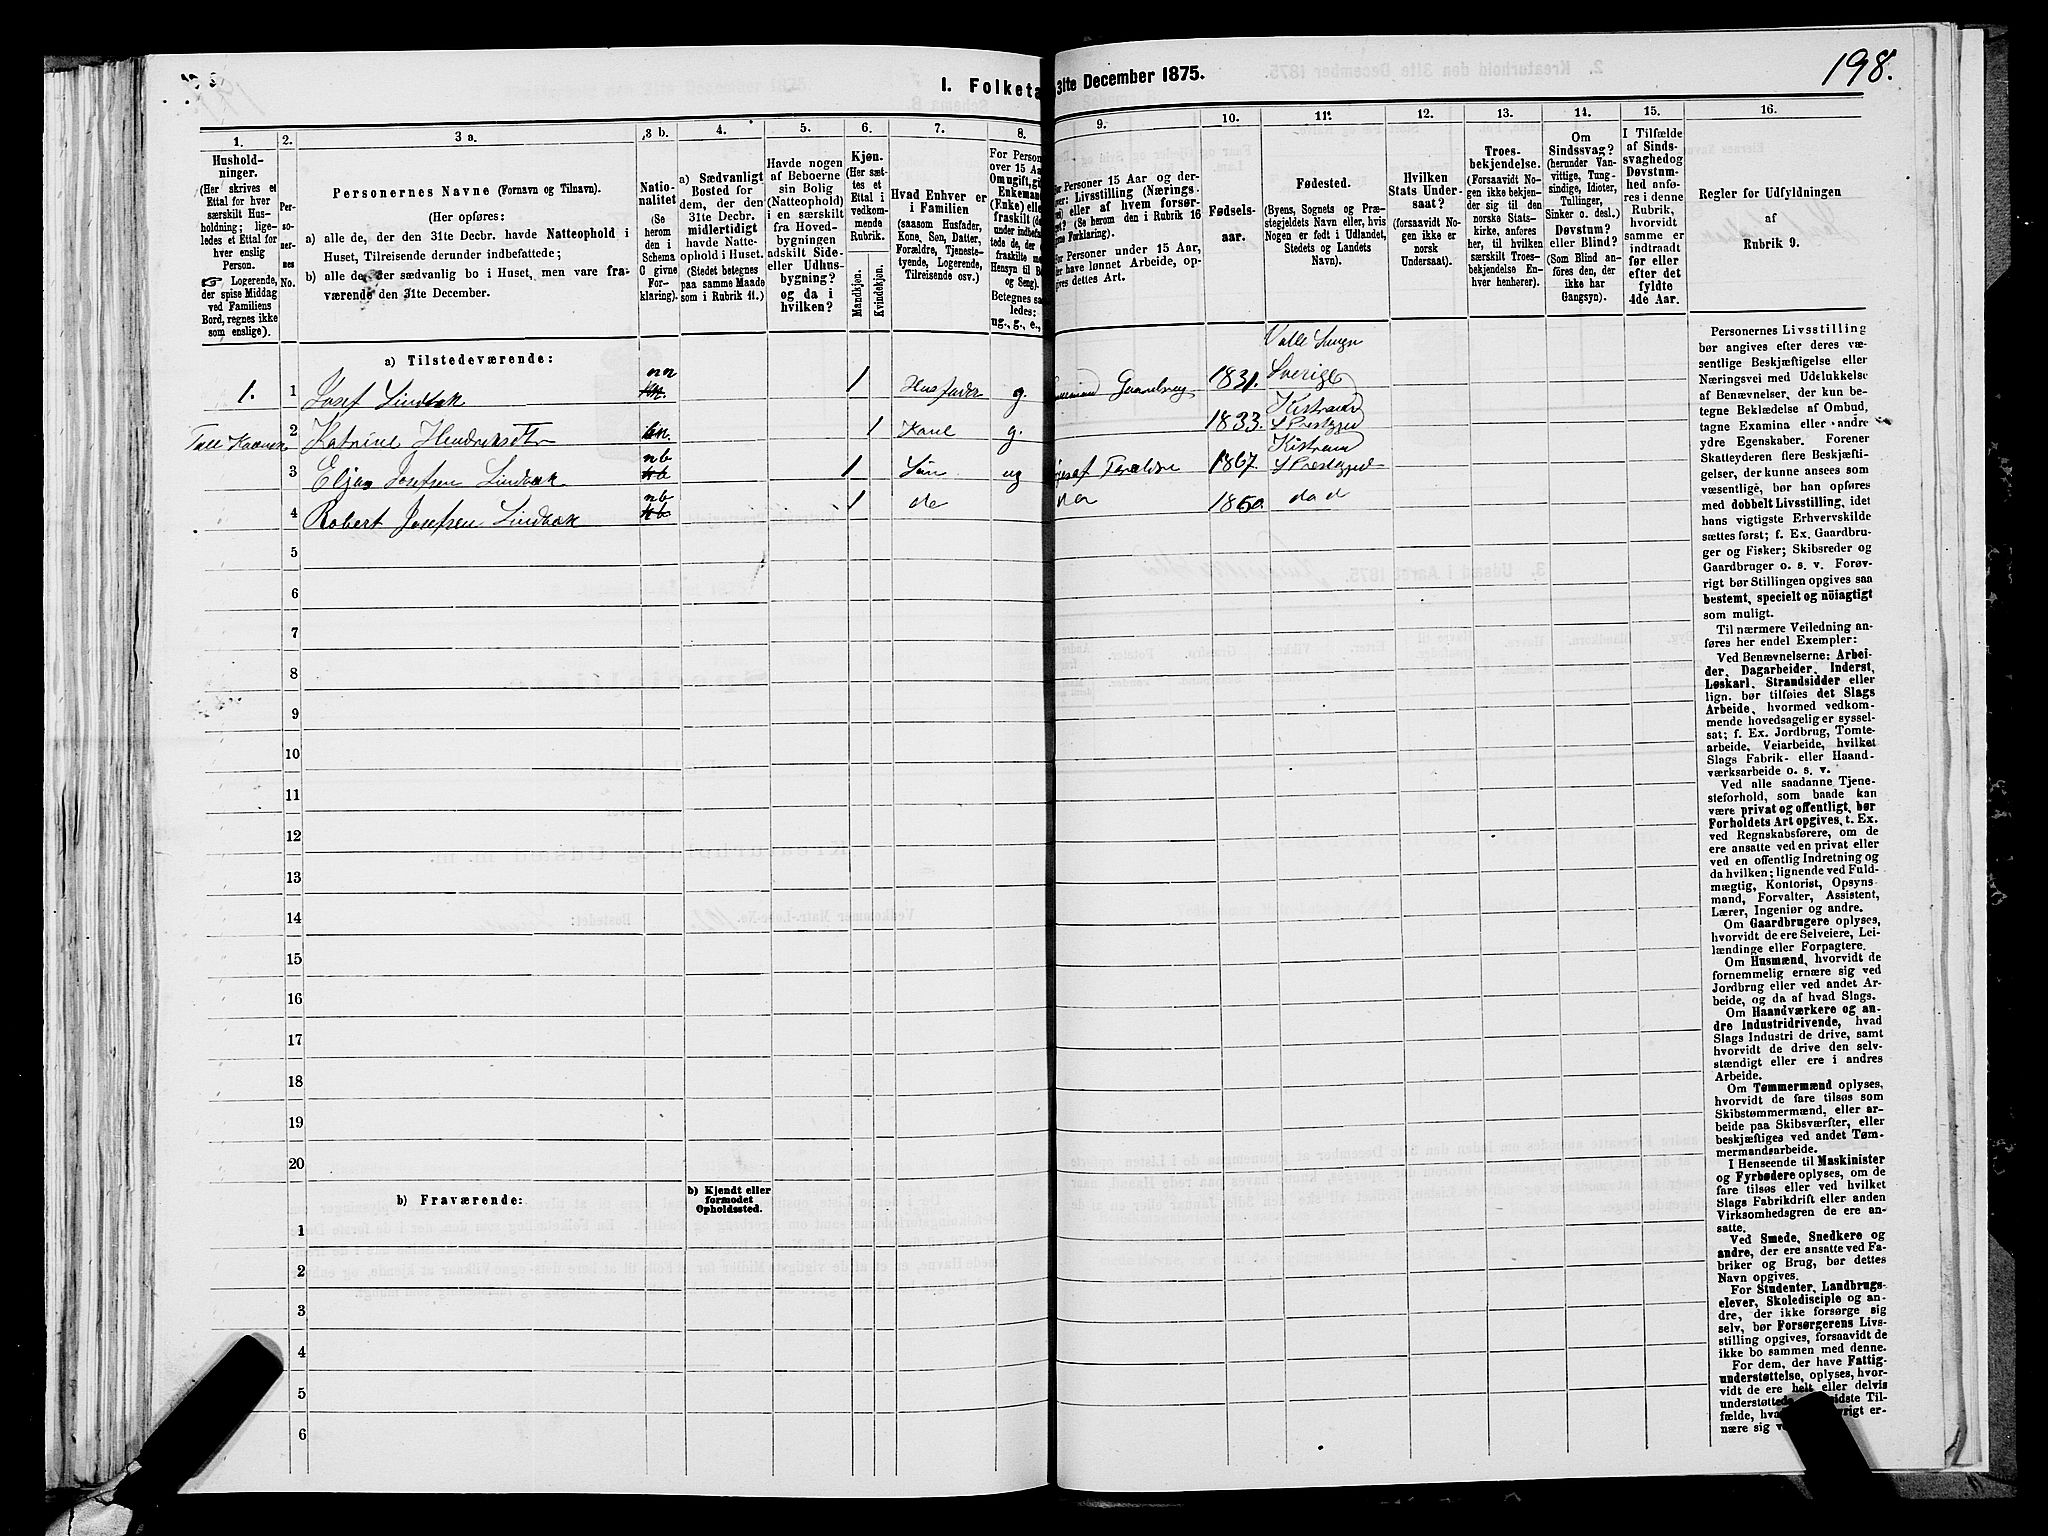 198.
I. Folketæ
31te December 1875.
1.
Hushold-
ninger.
(Her skrives et
Ettal for hver
særskilt Hus-
holdning; lige-
ledes et Ettal for
hver enslig
Person.
☞ Logerende,
der spise Middag
ved Familiens
Bord, regnes ikke
som enslige).
2.
Per-
so-
ner-
nes
No.
3 a.
Personernes Navne (Fornavn og Tilnavn).
(Her opføres:
a) alle de, der den 31te Decbr. havde Natteophold i
Huset, Tilreisende derunder indbefattede;
b) alle de, der sædvanlig bo i Huset, men vare fra-
værende den 31te December.
3 b.
Natio-
nalitet
(Se
herom
den i
Schema
C givne
For-
klaring).
4.
a) Sædvanligt
Bosted for
dem, der den
31te Decbr.
midlertidigt
havde Natte-
ophold i Huset.
(Stedet betegnes
paa samme Maade
som i Rubrik 11.)
5.
Havde nogen
af Beboerne
sin Bolig
(Natteophold)
i en særskilt
fra Hoved-
bygningen
adskilt Side-
eller Udhus-
bygning?
og da i
hvilken?
6.
Kjøn.
(Her sæt-
tes et
Ettal i
vedkom-
mende
Rubrik.
Mandkjøn.
Kvindekjøn.
7.
Hvad Enhver er
i Familien
(saasom Husfader,
Kone, Søn, Datter,
Forældre, Tjeneste-
tyende, Logerende,
Tilreisende osv.)
8.
For Person
over 15 Aa
Om ugift, gi
Enkeman
(Enke) elle
fraskilt (de
under indbefat-
tede de, der e
fraskilte m
Hensyn til B
og Seng).
Betegnes sa
ledes:
ug., g., e.,
9.
For Personer 15 Aar og der-
over: Livsstilling (Nærings-
vei) eller af hvem forsør-
get? (Se herom den i Rubrik 16
givne Forklaring).
For Personer under 15 Aar,
der have lønnet Arbeide, op-
gives dettes Art.
10.
Fødsels-
aar.
11.
Fødested.
(Byens, Sognets og Præ-
stegjeldets Navn eller, hvis
Nogen er født i Udlandet,
Stedets og Landets
Navn).
12.
Hvilken
Stats Under-
saat?
(forsaavidt No-
gen ikke er
norsk
Undersaat).
13.
Troes-
bekjendelse.
(Forsaavidt No-
gen ikke bekjen-
der sig til den
norske Stats-
kirke, anføres
her, til hvilken
særskilt Troes-
bekjendelse En-
hver henhører).
14.
Om
Sindssvag?
(herunder Van-
vittige, Tung-
sindige, Idioter,
Tullinger,
Sinker o. desl.)
Døvstum?
eller Blind?
(Som Blind an-
føres den, der
ikke har
Gangsyn).
15.
I Tilfælde
af Sinds-
svaghed og
Døvstum-
hed anfø-
res i denne
Rubrik,
hvorvidt
samme er
indtraadt
før eller
efter det
fyldte
4de Aar.
16.
Regler for Udfyldningen
af
Rubrik 9.
a) Tilstedeværende:
1. 1 Josef Lindbak nn 1 Husfader g. Gaardbrug 1831. Valle Sogn Sverige
2 Katrine Hendriksdtr 1 Kone g. 1833. Kistrand Prestgjed
3 Eljas Josefsen Lindbak nb 1 Søn ug Forældre 1867. Kistrand Prestgjed
4 Robert Josefsen Lindbak nb 1 do 18 do d
5
6
7
8
9
10
11
12
13
14
15
16
17
18
19
20
b) Fraværende:
b) Kjendt eller
formodet
Opholdssted.
1
2
3
4
5
6
Personernes Livsstilling
bør angives efter deres væ-
sentlige Beskjæftigelse eller
Næringsvei med Udelukkelse
af Benævnelser, der kun be-
tegne Beklædelse af Ombud,
tagne Examina eller andre
ydre Egenskaber. Forener
Skatteyderen flere Beskjæfti-
gelser, der kunne ansees som
væsentlige, bør han opføres
med dobbelt Livsstilling, idet
hans vigtigste Erhvervskilde
sættes først; f. Ex. Gaardbru-
ger og Fisker; Skibsreder og
Gaardbruger o. s. v. Forøv-
rigt bør Stillingen opgives saa
bestemt, specielt og nöiagtigt
som muligt.
Til nærmere Veiledning an-
føres her endel Exempler:
Ved Benævnelserne: Arbei-
der, Dagarbeider, Inderst,
Løskarl, Strandsidder eller
lign. bør tilføies det Slags
Arbeide, hvormed vedkom-
mende hovedsagelig er syssel-
sat; f. Ex. Jordbrug, Tomte-
arbeide, Veiarbeide, hvilket
Slags Fabrik- eller Haand-
værksarbeide o. s. v.
Ved alle saadanne Tjene-
steforhold, som baade kan
være privat og offentligt, bør
Forholdets Art opgives, t. Ex.
ved Regnskabsførere, om de
ere ansatte ved en privat eller
ved en offentlig Indretning og
da hvilken; lignende ved Fuld-
mægtig, Kontorist, Opsyns-
mand, Forvalter, Assistent,
Lærer, Ingeniør og andre.
Om Gaardbrugere oplyses,
hvorvidt de ere Selveiere, Lei-
lændinge eller Forpagtere.
Om Husmænd, hvorvidt de
fornemmelig ernære sig ved
Jordbrug eller ved andet Ar-
beide, og da af hvad Slags.
Om Haandværkere og an-
dre Industridrivende, hvad
Slags Industri de drive, samt
hvorvidt de drive den selv-
stændigt eller ere i andres
Arbeide.
Om Tømmermænd oplyses,
hvorvidt de fare tilsøs som
Skibstømmermænd, eller ar-
beide paa Skibsværfter, eller
beskjæftiges ved andet Tøm-
mermandsarbeide.
I Henseende til Maskinister
og Fyrbødere oplyses, om de
fare tilsøs eller ved hvilket
Slags Fabrikdrift eller anden
Virksomhedsgren de ere an-
satte.
Ved Smede, Snedkere og
andre, der ere ansatte ved Fa-
briker og Brug, bør dettes
Navn opgives.
For Studenter, Landbrugs-
elever, Skoledisciple og an-
dre, der ikke forsørge sig
selv, bør Forsørgerens Livs-
stilling opgives, forsaavidt de
ikke bo sammen med denne.
For dem, der have Fattig-
understøttelse, oplyses, hvor-
vidt de ere helt eller delvis
understøttede sidste Til-
fælde, hva vrigt er-
nære sig